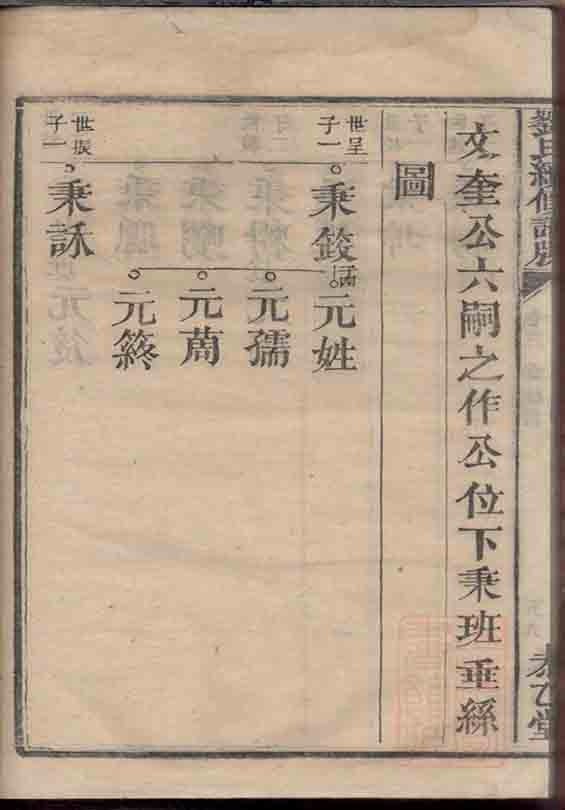 文奎公六嗣之作公位下秉班垂絲
圖
世呈子一
秉鈙
元姓
元孺
元萬
元終
世振子一
秉詠
恭乙堂